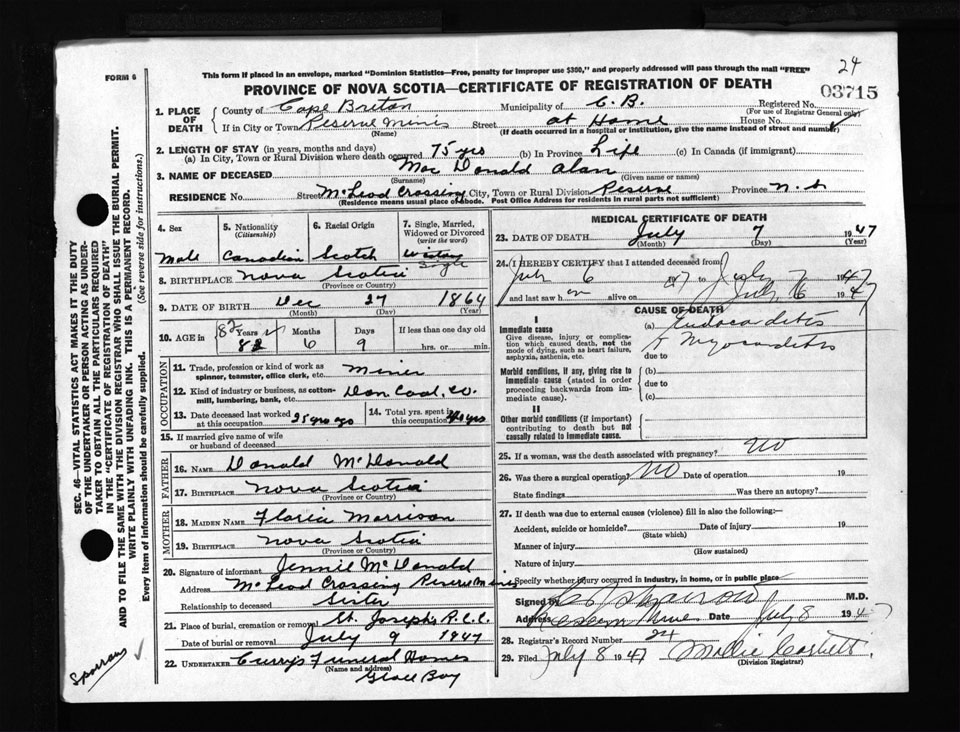 24
FORM 6
This form if placed in an envelope, marked "Dominion Statistics—Free, penalty for improper use $300," and properly addressed will pass through the mail "FREE"
PROVINCE OF NOVA SCOTIA—CERTIFICATE OF REGISTRATION OF DEATH
03715
1. PLACE OF DEATH
County of Cape Breton Municipality of C. B. Registered No.
(For use of Registrar General only)
If in City or Town Reserve Mines Street at Home House No.
(Name) (If death occurred in a hospital or institution, give the name instead of street and number)
2. LENGTH OF STAY (in years, months and days)
(a) In City, Town or Rural Division where death occurred 75 yrs (b) In Province Life (c) In Canada (if immigrant)
3. NAME OF DECEASED Mac Donald Alan
(Surname) (Given name or names)
RESIDENCE No. Street McLead Crossing City, Town or Rural Division Reserve Province N. S
(Residence means usual place of abode. Post Office Address for residents in rural parts not sufficient)
4. Sex
Male
5. Nationality
(Citizenship)
Canadian
6. Racial Origin
Scotch
7. Single, Married, Widowed or Divorced
(write the word)
Single
8. BIRTHPLACE Nova Scotia
(Province or Country)
9. DATE OF BIRTH Dec 27 1864
(Month) (Day) (Year)
10. AGE in
Years 82
82
Months 6
Days 9
If less than one day old
hrs. or min.
OCCUPATION
11. Trade, profession or kind of work as spinner, teamster, office clerk, etc. Miner
12. Kind of industry or business, as cotton-mill, lumbering, bank, etc. Dom Coal, Co.
13. Date deceased last worked at this occupation 25 yrs ago
14. Total yrs. spent in this occupation 40 yrs
15. If married give name of wife or husband of deceased
FATHER
16. NAME Donald McDonald
17. BIRTHPLACE Nova Scotia
(Province or Country)
MOTHER
18. MAIDEN NAME Florie Morrison
19. BIRTHPLACE Nova Scotia
(Province or Country)
20. Signature of informant Jennie McDonald
Address McLead Crossing Reserve Mines
Relationship to deceased Sister
21. Place of burial, cremation or removal St. Joseph's R.C.C.
Date of burial or removal July 9 1947
22. UNDERTAKER Curry's Funeral Homes
(Name and address)
Glace Bay
MEDICAL CERTIFICATE OF DEATH
23. DATE OF DEATH July 7 1947
(Month) (Day) (Year)
24. I HEREBY CERTIFY that I attended deceased from
July 6 1947 to July 7 1947
and last saw h im alive on July 6 1947
CAUSE OF DEATH
I
Immediate cause
Give disease, injury or complication which caused death, not the mode of dying, such as heart failure, asphyxia, asthenia, etc.
(a) Endocarditis
& Myocarditis
due to
Morbid conditions, if any, giving rise to immediate cause (stated in order proceeding backwards from immediate cause).
(b)
due to
(c)
II
Other morbid conditions (if important) contributing to death but not causally related to immediate cause.
25. If a woman, was the death associated with pregnancy? No
26. Was there a surgical operation? No Date of operation 19
State findings Was there an autopsy?
27. If death was due to external causes (violence) fill in also the following:—
Accident, suicide or homicide? Date of injury 19
(State which)
Manner of injury
(How sustained)
Nature of injury
Specify whether injury occurred in industry, in home, or in public place
Signed by Sparrow M.D.
Address Reserve Mines Date July 8 1947
28. Registrar's Record Number 24
29. Filed July 8 1947 Mollie
(Division Registrar)
SEC. 46—VITAL STATISTICS ACT MAKES IT THE DUTY
OF THE UNDERTAKER OR PERSON ACTING AS UNDER-
TAKER TO OBTAIN ALL THE PARTICULARS REQUIRED
IN THE "CERTIFICATE OF REGISTRATION OF DEATH"
AND TO FILE THE SAME WITH THE DIVISION REGISTRAR WHO SHALL ISSUE THE BURIAL PERMIT.
WRITE PLAINLY WITH UNFADING INK. THIS IS A PERMANENT RECORD.
Every item of information should be carefully supplied. (See reverse side for instructions.)
Sparrow